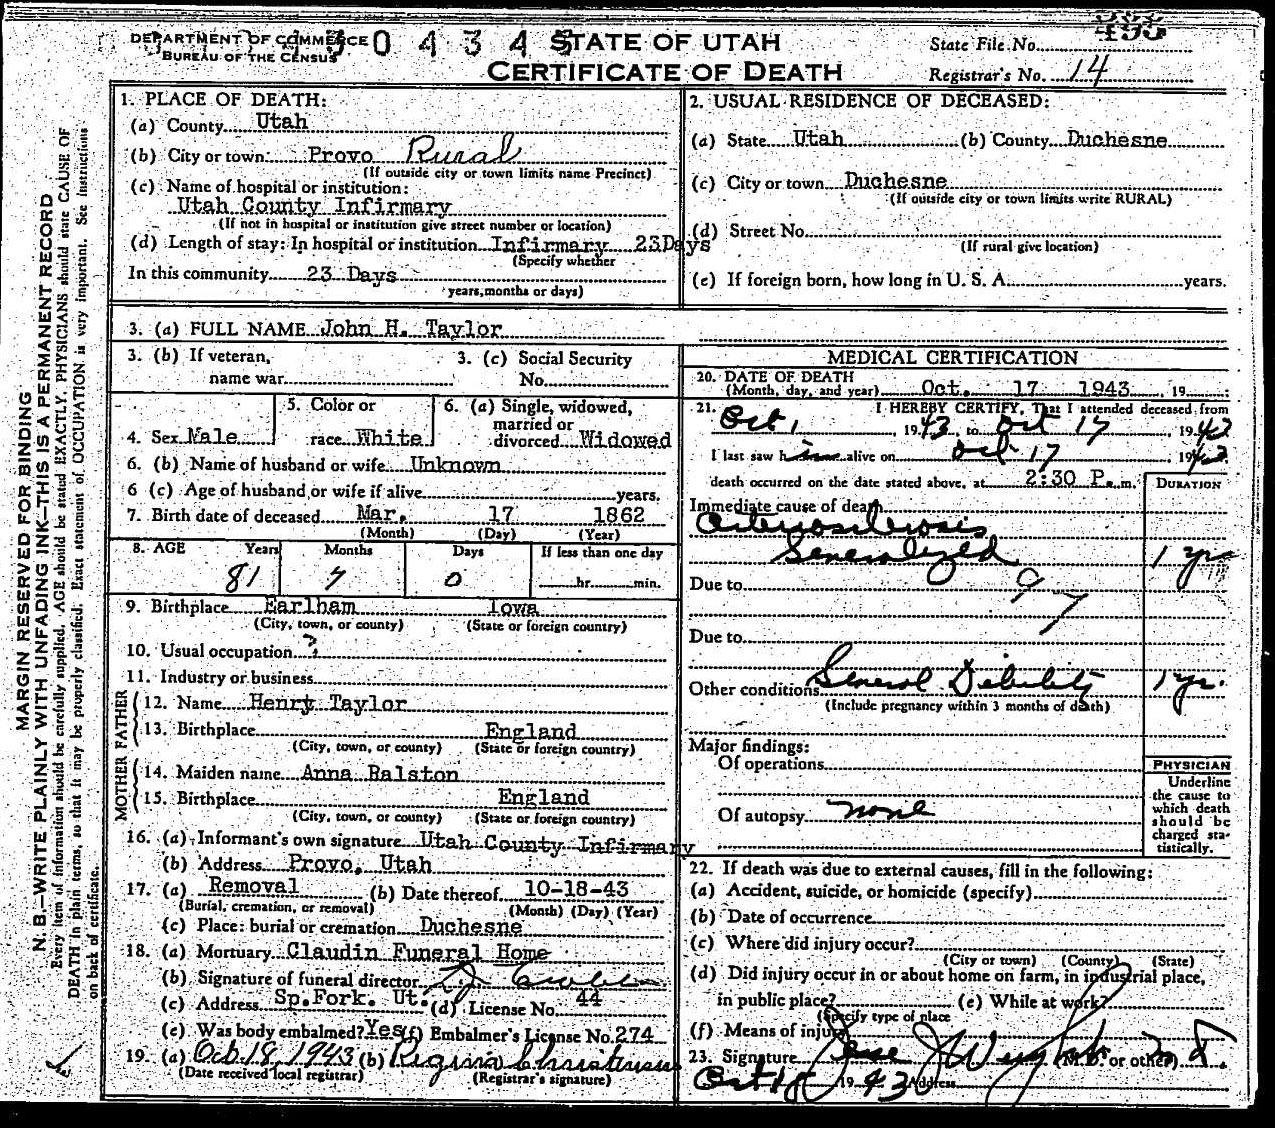 DEPARTMENT OF COMMERCE
BUREAU OF THE CENSUS
STATE OF UTAH
CERTIFICATE OF DEATH
State File No.
Registrar's No. 14
MARGIN RESERVED FOR BINDING
N. B.—WRITE PLAINLY WITH UNFADING INK—THIS IS A PERMANENT RECORD
Every item of information should be carefully supplied. AGE should be stated EXACTLY. PHYSICIANS should state CAUSE OF
DEATH in plain terms, so that it may be properly classified. Exact statement of OCCUPATION is very important. See instructions
on back of certificate.
1. PLACE OF DEATH:
(a) County Utah
(b) City or town: Provo Rural
(If outside city or town limits name Precinct)
(c) Name of hospital or institution:
Utah County Infirmary
(If not in hospital or institution give street number or location)
(d) Length of stay: In hospital or institution Infirmary 23Days
(Specify whether
In this community 23 Days
years, months or days)
2. USUAL RESIDENCE OF DECEASED:
(a) State Utah (b) County Duchesne
(c) City or town Duchesne
(If outside city or town limits write RURAL)
(d) Street No.
(If rural give location)
(e) If foreign born, how long in U. S. A. years.
3. (a) FULL NAME John H. Taylor
3. (b) If veteran, name war
3. (c) Social Security No.
4. Sex Male
5. Color or race White
6. (a) Single, widowed, married or divorced Widowed
6. (b) Name of husband or wife Unknown
6 (c) Age of husband or wife if alive years.
7. Birth date of deceased Mar. 17 1862
(Month) (Day) (Year)
8. AGE Years Months Days If less than one day
81 7 0 hr. min.
9. Birthplace Earlham Iowa
(City, town, or county) (State or foreign country)
10. Usual occupation ?
11. Industry or business
FATHER
12. Name Henry Taylor
13. Birthplace England
(City, town, or county) (State or foreign country)
MOTHER
14. Maiden name Anna Ralston
15. Birthplace England
(City, town, or county) (State or foreign country)
16. (a) Informant's own signature Utah County Infirmary
(b) Address Provo, Utah
17. (a) Removal (b) Date thereof 10-18-43
(Burial, cremation, or removal) (Month) (Day) (Year)
(c) Place: burial or cremation Duchesne
18. (a) Mortuary Claudin Funeral Home
(b) Signature of funeral director
(c) Address Sp.Fork. Ut. (d) License No. 44
(e) Was body embalmed? Yes (f) Embalmer's License No. 274
19. (a) Oct 18, 1943 (b) Regina Christensen
(Date received local registrar) (Registrar's signature)
MEDICAL CERTIFICATION
20. DATE OF DEATH
(Month, day, and year) Oct. 17 1943, 19
21. I HEREBY CERTIFY, That I attended deceased from
Oct 1, 1943, to Oct 17, 1943
I last saw him alive on Oct 17, 1943
death occurred on the date stated above, at 2:30 P. m.
DURATION
Immediate cause of death
Arteriosclerosis
Generalized 1 yr
97
Due to
Due to
Other conditions General Dibility 1 yr.
(Include pregnancy within 3 months of death)
Major findings:
Of operations
Of autopsy none
PHYSICIAN
Underline
the cause to
which death
should be
charged sta-
tistically.
22. If death was due to external causes, fill in the following:
(a) Accident, suicide, or homicide (specify)
(b) Date of occurrence
(c) Where did injury occur?
(City or town) (County) (State)
(d) Did injury occur in or about home on farm, in industrial place,
in public place? (e) While at work?
(Specify type of place
(f) Means of injury
23. Signature (M.D. or other) M.D.
Oct 18 1943 Address